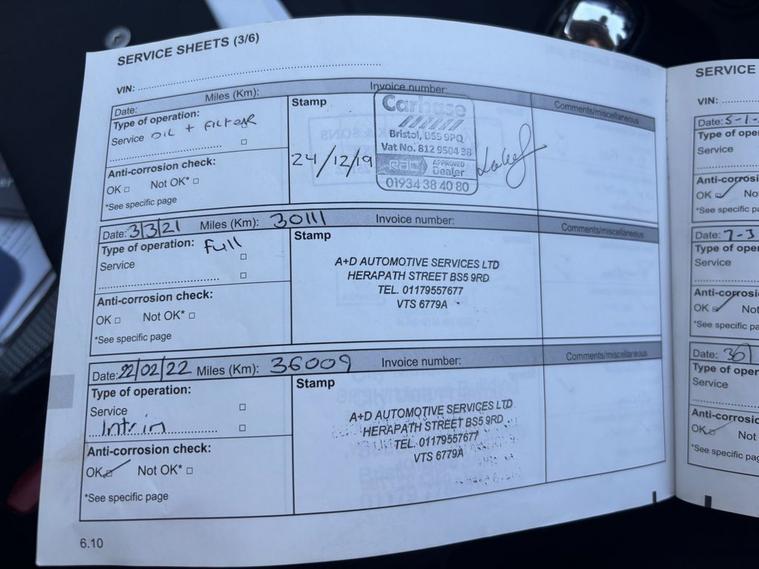 SERVICE SHEETS (3/6)
VIN:
Date: Miles (Km): Invoice number: Comments/miscellaneous
Type of operation:
Service OIL + FILTER
Anti-corrosion check:
OK Not OK*
*See specific page
Stamp
24/12/19
Carbase
Bristol, BS5 9PQ
Vat No. 812 9504 38
RAC APPROVED Dealer
01934 38 40 80
Date: 3/3/21 Miles (Km): 30111 Invoice number: Comments/miscellaneous
Type of operation: Full
Service
Anti-corrosion check:
OK Not OK*
*See specific page
Stamp
A+D AUTOMOTIVE SERVICES LTD
HERAPATH STREET BS5 9RD
TEL. 01179557677
VTS 6779A
Date: 22/02/22 Miles (Km): 36009 Invoice number: Comments/miscellaneous
Type of operation:
Service
Intrim
Anti-corrosion check:
OK Not OK*
*See specific page
Stamp
A+D AUTOMOTIVE SERVICES LTD
HERAPATH STREET BS5 9RD
TEL. 01179557677
VTS 6779A
6.10
SERVICE
VIN:
Date: 5-1-
Type of ope
Service
Anti-corrosi
OK Not
*See specific pag
Date: 7-3
Type of ope
Service
Anti-corros
OK No
*See specific pa
Date: 30/
Type of oper
Service
Anti-corros
OK Not
*See specific pag